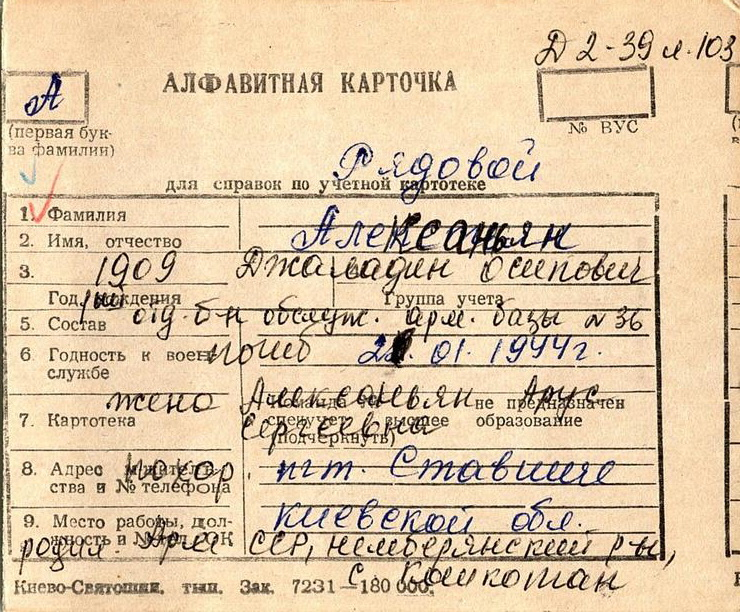 Д 2-39 л. 103
АЛФАВИТНАЯ КАРТОЧКА
А
(первая бук-
ва фамилии)
№ ВУС
Рядовой
для справок по учетной картотеке
1. Фамилия
2. Имя, отчество Алексаньян
3. 1909 Джаладин Осипович
Год рождения Группа учета
5. Состав отд. б-н обслуж. арм. базы № 36
6. Годность к воен погиб 01.1944г.
службе
жена Алексаньян Арус
не предназначен
7. Картотека Сергеевна
высшее образование
(подчеркнуть)
8. Адрес похор. пгт. Ставище
ства и № телефона
9. Место работы, дол- Киевской обл.
родил. Арм ССР,
с. Кошкотан
Киево-Святошин. тип. Зак. 7231—180 000.